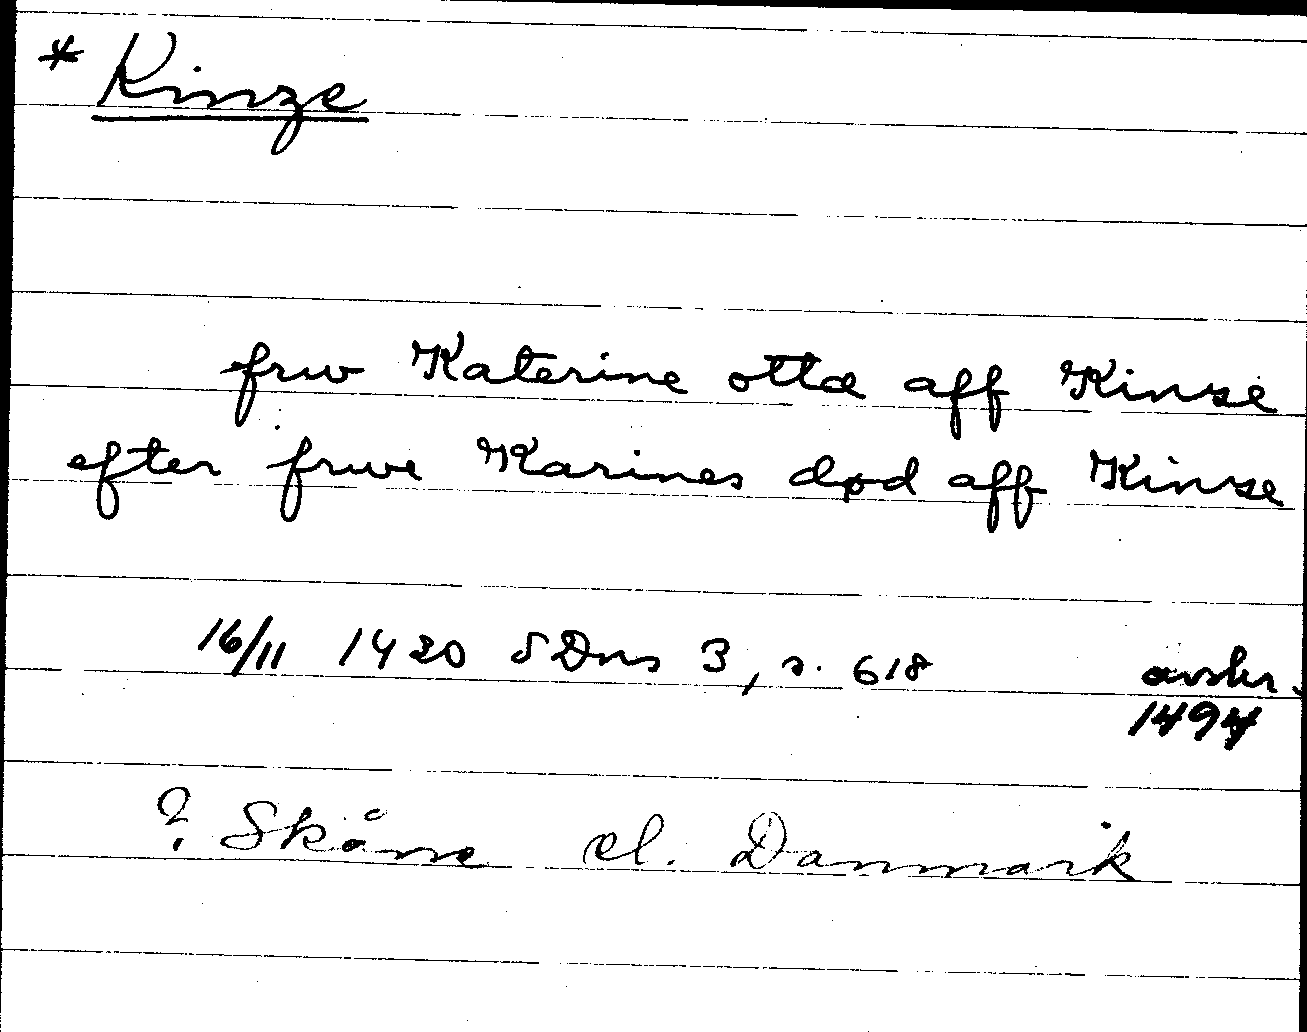 * Kinze
frw Katerine ottæ aff Kinze
efter frwe Karines død aff Kinze
16/11 1420 SDns 3, s. 618 avskr.
1494
? Skåne el. Danmark